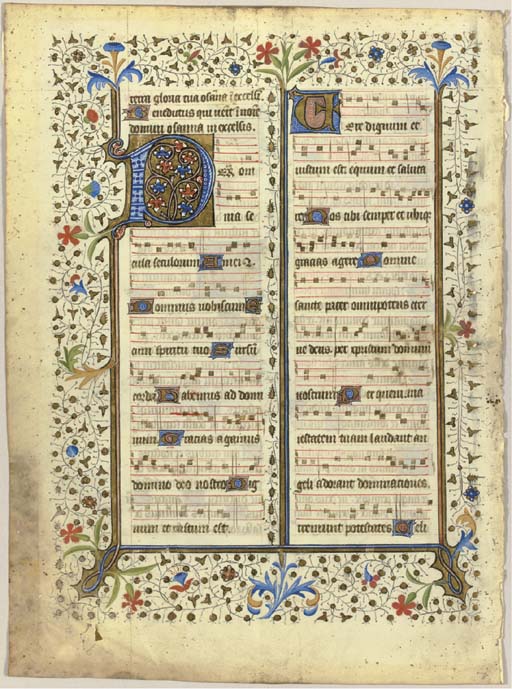 terra gloria tua osana i excelsis.
Benedictus qui venit i noie
domini osanna in excelsis.
Per om
nia se
cula seculorum Amen
Dominus vobiscum Et
cum spiritu tuo Sursu
corda Habemus ad domi
num Gracias agamus
domino deo nostro Dig
num et iustum est.
Ere dignum et
iustum est equum et saluta
re Nos tibi semper et ubiqz
gracias agere Domine
sancte pater omnipotens eter
ne deus per cristum dominum
nostrum Per quem ma
iestatem tuam laudant an
geli adorant dominationes
tremunt potestates Celi